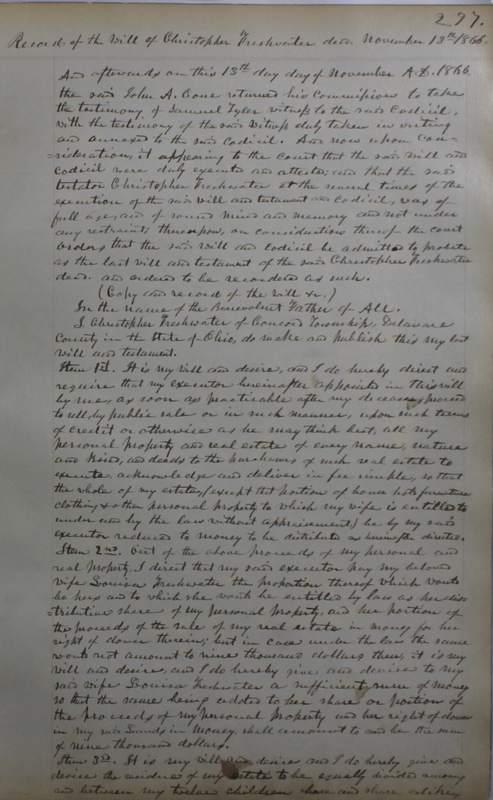 297.
Record of the Will of Christopher Freshwater decd. November 13th 1866.
And afterwards on this 13th day day of November A.D. 1866.
the said John A. Cone returned his Commission to take
the testimony of Samuel Tyler witness to the said Codicil,
with the testimony of the said Witness duly taken in writing
and annexed to the said Codicil. And now upon con-
=sideration, it appearing to the Court that the said Will and
Codicil were duly executed and attested; and that the said
testator Christopher Freshwater at the several times of the
execution of the said Will and testament and Codicil, was of
full age, and of sound mind and memory and not under
any restraint; thereupon, on consideration thereof the court
orders that the said Will and Codicil be admitted to probate
as the last will and testament of the said Christopher Freshwater
decd. and ordered to be recorded as such.
(Copy and record of the Will &c.)
In the name of the Benevolent Father of All.
I, Christopher Freshwater of Concord Township, Delaware
County, in the State of Ohio, do make and publish this my last
will and testament.
Item 1st. It is my will and desire, and I do hereby direct and
require that my executor hereinafter appointed in this will
by me, as soon as practicable after my decease, proceed
to sell, by public sale or in such manner, upon such terms
of credit or otherwise as he may think best, all my
personal property and real estate of every name, nature
and kind, and deeds to the purchasers of such real estate to
execute, acknowledge and deliver in fee simple, so that
the whole of my estate, (except that portion of household furniture
clothing & other personal property to which my wife is entitled to
under and by the law without appraisement) be by my said
executor reduced to money to be distributed as hereinafter directed.
Item 2nd. Out of the above proceeds of my personal and
real property, I direct that my said executor pay my beloved
wife Louisa Freshwater the proportion thereof which would
be hers and to which she would be entitled by law as her dis-
=tributive share of my personal property, and her portion of
the proceeds of the sale of my real estate in money for her
right of dower therein; but in case under the law the same
would not amount to nine thousand dollars then, it is my
will and desire, and I do hereby give and devise to my
said wife Louisa Freshwater a sufficient sum of money
so that the same being added to her share or portion of
the proceeds of my personal property and her right of dower
in my said lands in money shall amount to and be the sum
of nine thousand dollars.
Item 3rd. It is my will and desire and I do hereby give and
devise the residue of my estate to be equally divided among
and between my twelve children share and share alike,